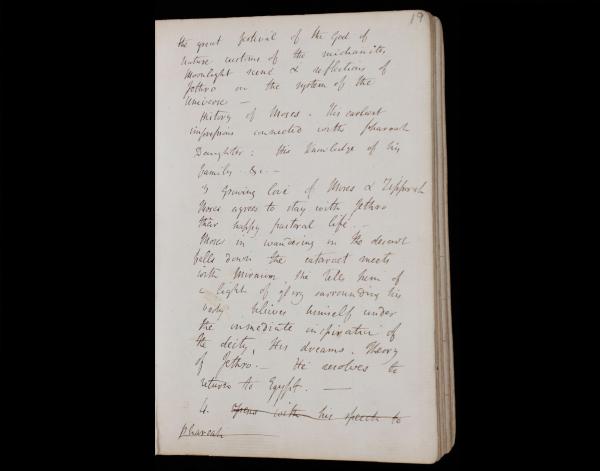 19
the great festival of the God of
Nature customs of the midianites
Moonlight scene & reflections of
Jethro on the system of the
Universe —
History of Moses. His earliest
impressions connected with pharoah
Daughter: His knowledge of his
family &c. —
3 Growing love of Moses & Zipporah
Moses agrees to stay with Jethro
their happy pastoral life. —
Moses in wandering in the desert
falls down the cataract meets
with he tells him of
a light of glory surrounding his
body believes himself under
the immediate inspiration of
the deity, His dreams. Theory
of Jethro. — He resolves to
return to Egypt. —
4. opens with his speech to
pharoah